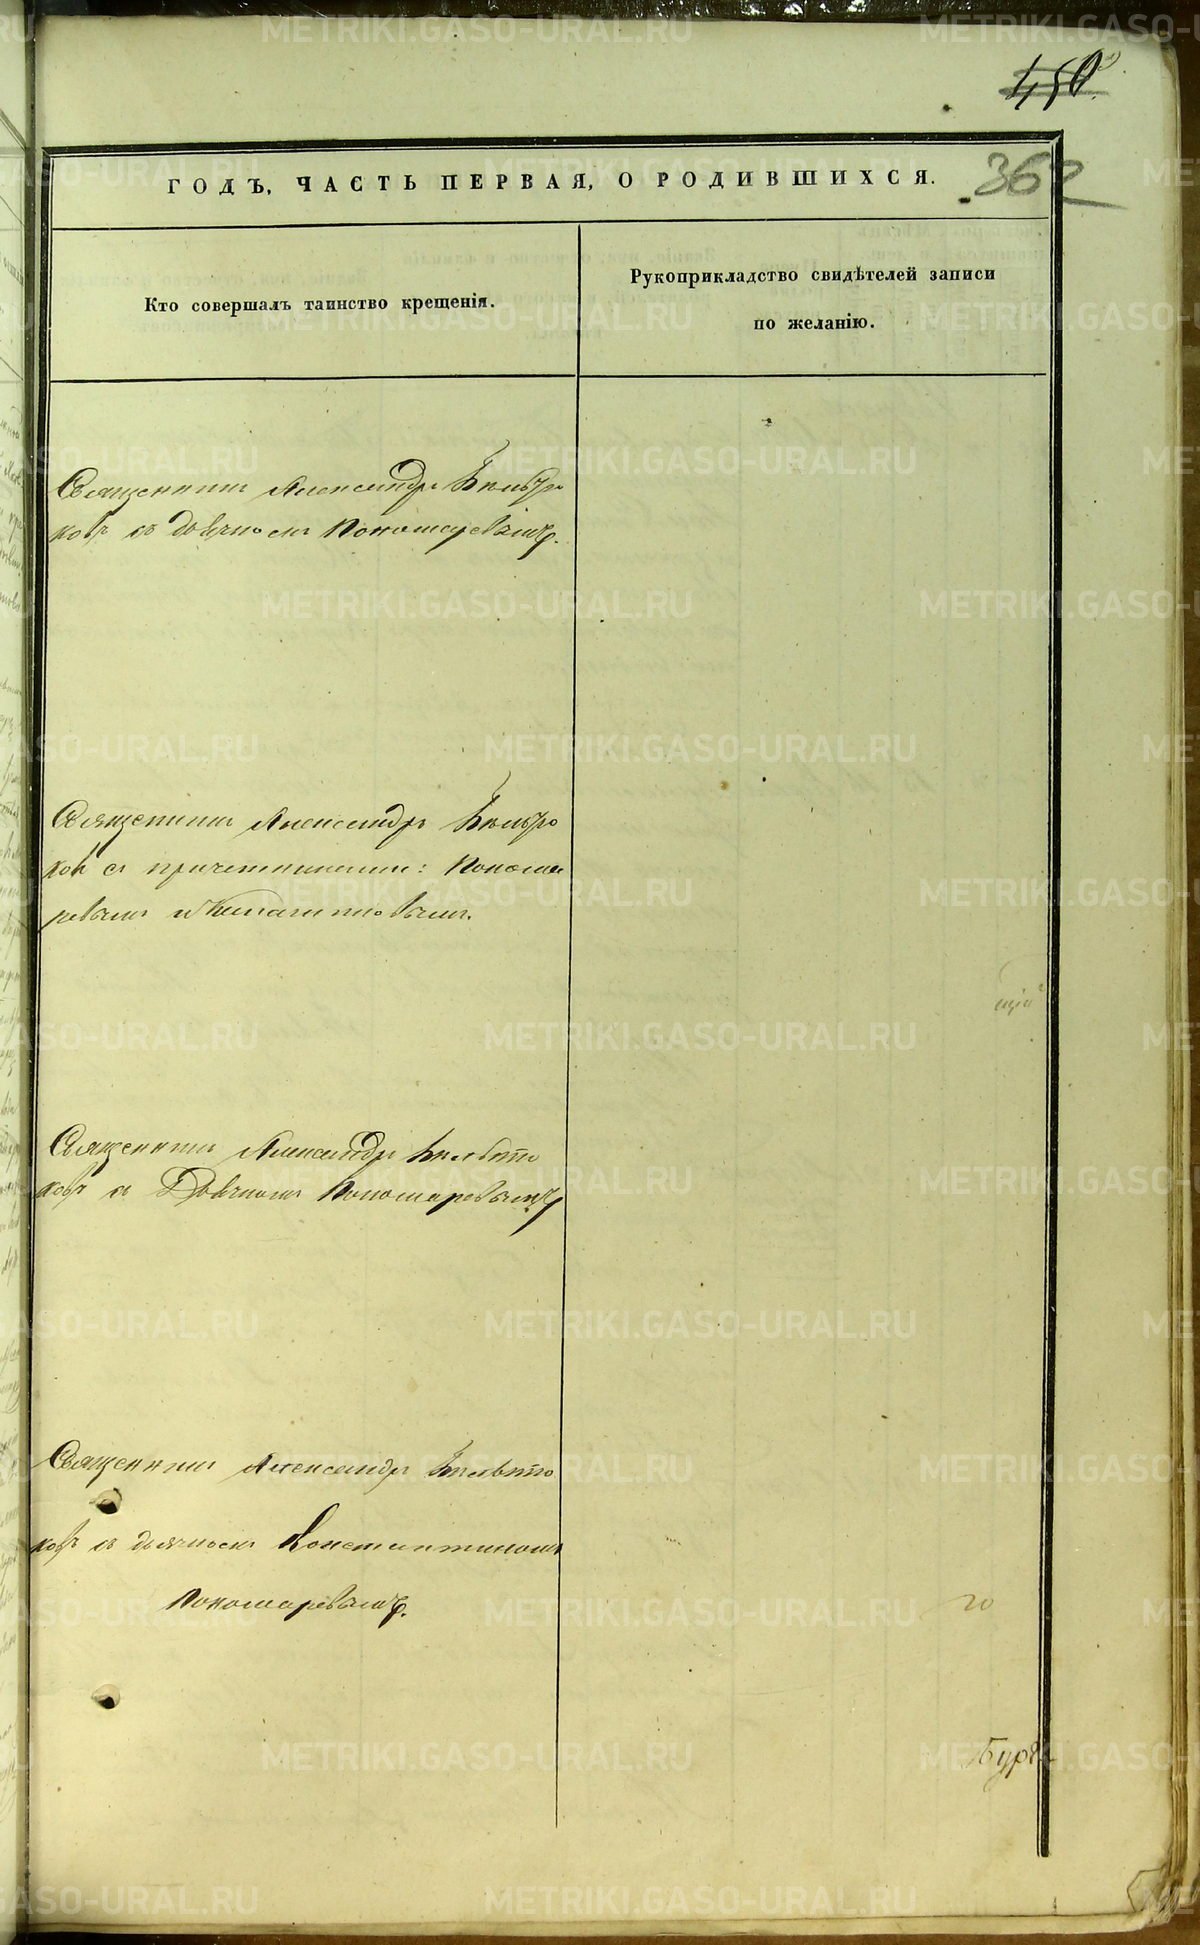 450.
362
ГОДЪ, ЧАСТЬ ПЕРВАЯ, О РОДИВШИХСЯ.
Кто совершалъ таинство крещенія.
Рукоприкладство свидѣтелей записи
по желанію.
Священникъ Александръ
ковъ съ дьячкомъ Пономаревымъ.
Священникъ Александръ
ковъ съ причетниками: Понома
ревымъ и
Священникъ Александръ
ковъ съ Дьячкомъ Пономаревымъ
Священникъ Александръ
ковъ съ дьячкомъ Константиномъ
Пономаревымъ.
METRIKI.GASO-URAL.RU